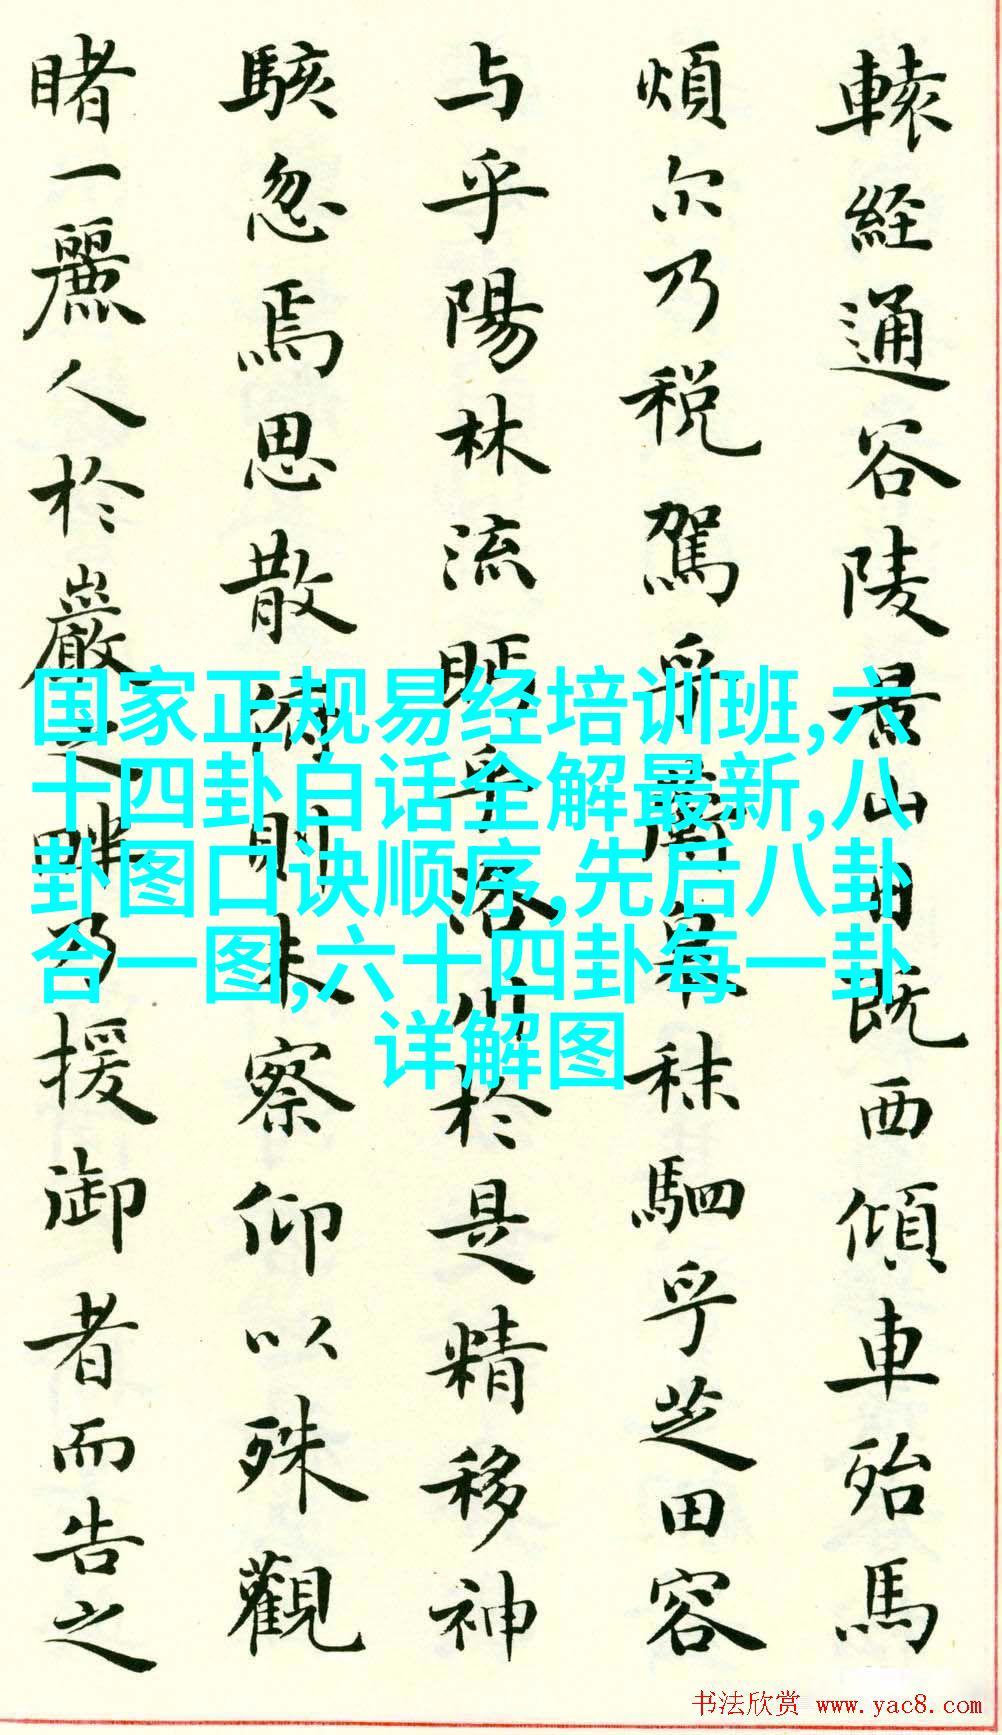 轅経通谷陵景山日既西傾車殆馬
煩尔乃税駕乎蘅皋秣駟乎芝田容
与乎陽林流眄乎洛川於是精移神
駭忽焉思散俯則未察仰以殊觀
睹一麗人於巖之畔乃援御者而告之
国家正规易经培训班,六
十四卦白话全解最新,八
卦图口诀顺序,先后八卦
合一图,六十四卦每一卦
详解图
书法欣赏 www.yac8.com